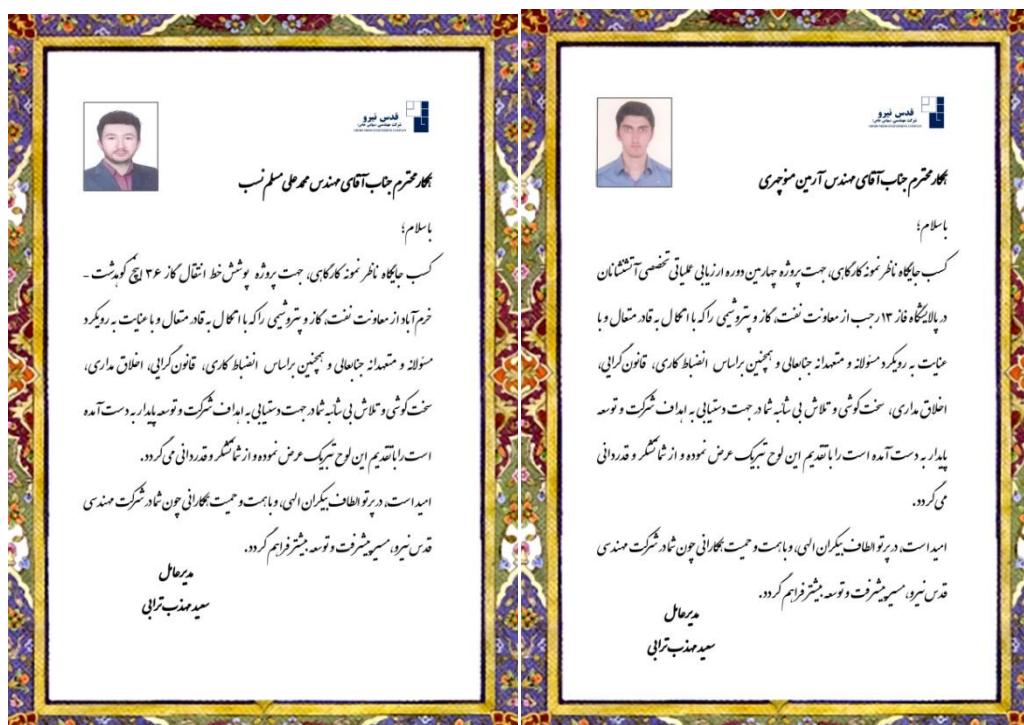 قدس نیرو
همکار محترم جناب آقای مهندس آرمین منوچهری
با سلام؛
کسب جایگاه ناظر نمونه کارگاهی، جهت پروژه چهارمین دوره ارزیابی عملیاتی تخصصی آتشنشانان
در پالایشگاه فاز ۱۳ رجب از معاونت نفت، گاز و پتروشیمی را که با اتکال به قادر متعال و با
عنایت به رویکرد مسئولانه و متعهدانه جنابعالی و همچنین براساس انضباط کاری، قانون‌گرایی،
اخلاق مداری، سخت‌کوشی و تلاش بی شائبه شما در جهت دستیابی به اهداف شرکت و توسعه
پایدار به دست آمده است را با تقدیم این لوح تبریک عرض نموده و از شما تشکر و قدردانی
می‌گردد.
امید است، در پرتو الطاف بیکران الهی، و با همت و حمیت همکارانی چون شما در شرکت مهندسی
قدس نیرو، مسیر پیشرفت و توسعه بیشتر فراهم گردد.
مدیرعامل
سعید مهذب ترابی
قدس نیرو
همکار محترم جناب آقای مهندس محمد علی مسلم نسب
با سلام؛
کسب جایگاه ناظر نمونه کارگاهی، جهت پروژه پوشش خط انتقال گاز ۳۶ اینچ کوهدشت -
خرم آباد از معاونت نفت، گاز و پتروشیمی را که با اتکال به قادر متعال و با عنایت به رویکرد
مسئولانه و متعهدانه جنابعالی و همچنین براساس انضباط کاری، قانون‌گرایی، اخلاق مداری،
سخت‌کوشی و تلاش بی شائبه شما در جهت دستیابی به اهداف شرکت و توسعه پایدار به دست آمده
است را با تقدیم این لوح تبریک عرض نموده و از شما تشکر و قدردانی می‌گردد.
امید است، در پرتو الطاف بیکران الهی، و با همت و حمیت همکارانی چون شما در شرکت مهندسی
قدس نیرو، مسیر پیشرفت و توسعه بیشتر فراهم گردد.
مدیرعامل
سعید مهذب ترابی